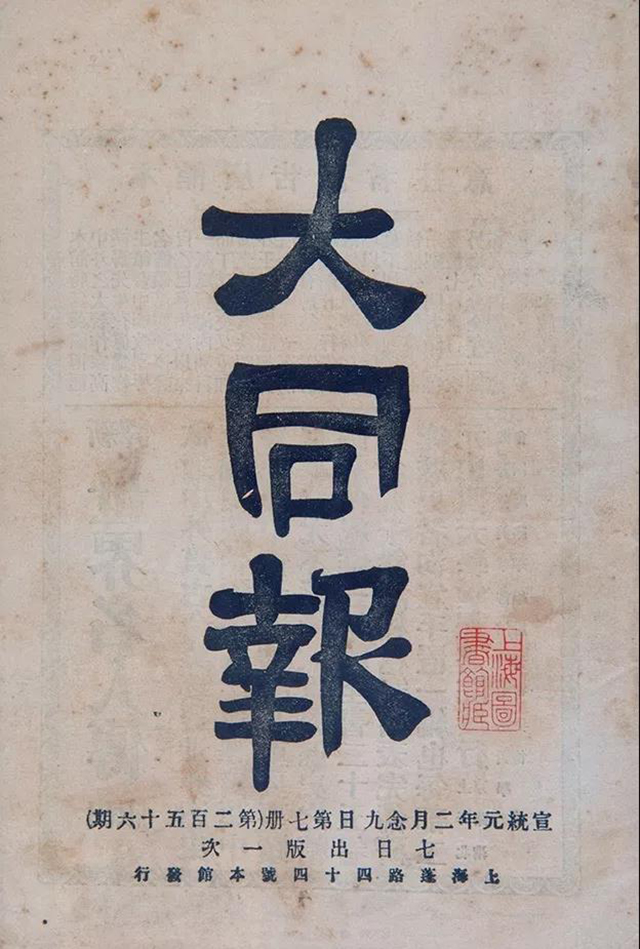 大同報
上海圖
書館藏
宣統元年二月念九日第七册(第二百五十六期)
七日出版一次
上海蓬路四十四號本館發行